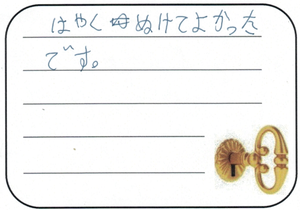 はやくぬけてよかった
です。